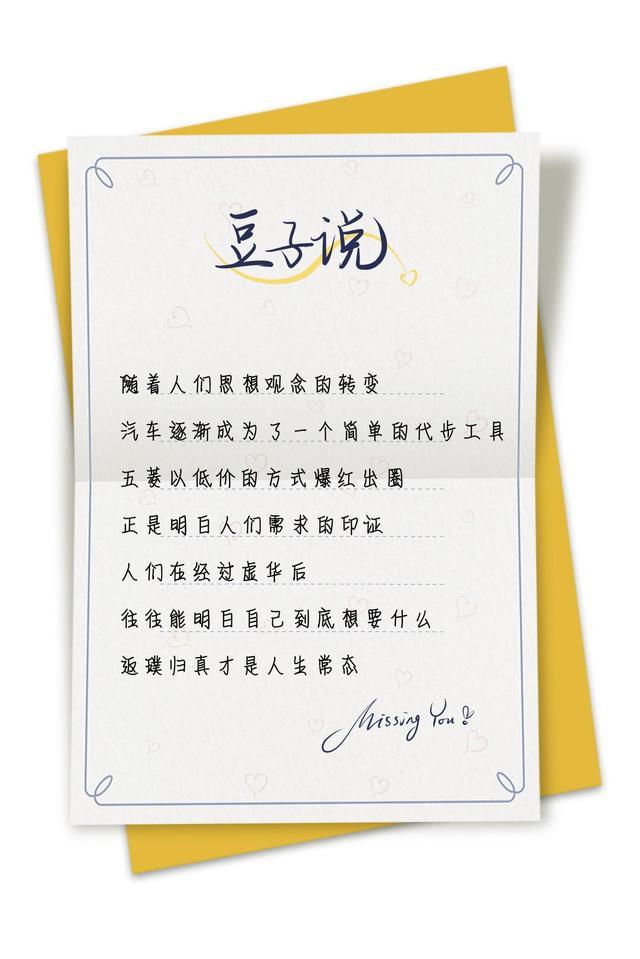 豆子说
随着人们思想观念的转变
汽车逐渐成为了一个简单的代步工具
五菱以低价的方式爆红出圈
正是明白人们需求的印证
人们在经过虚华后
往往能明白自己到底想要什么
返璞归真才是人生常态
Missing You